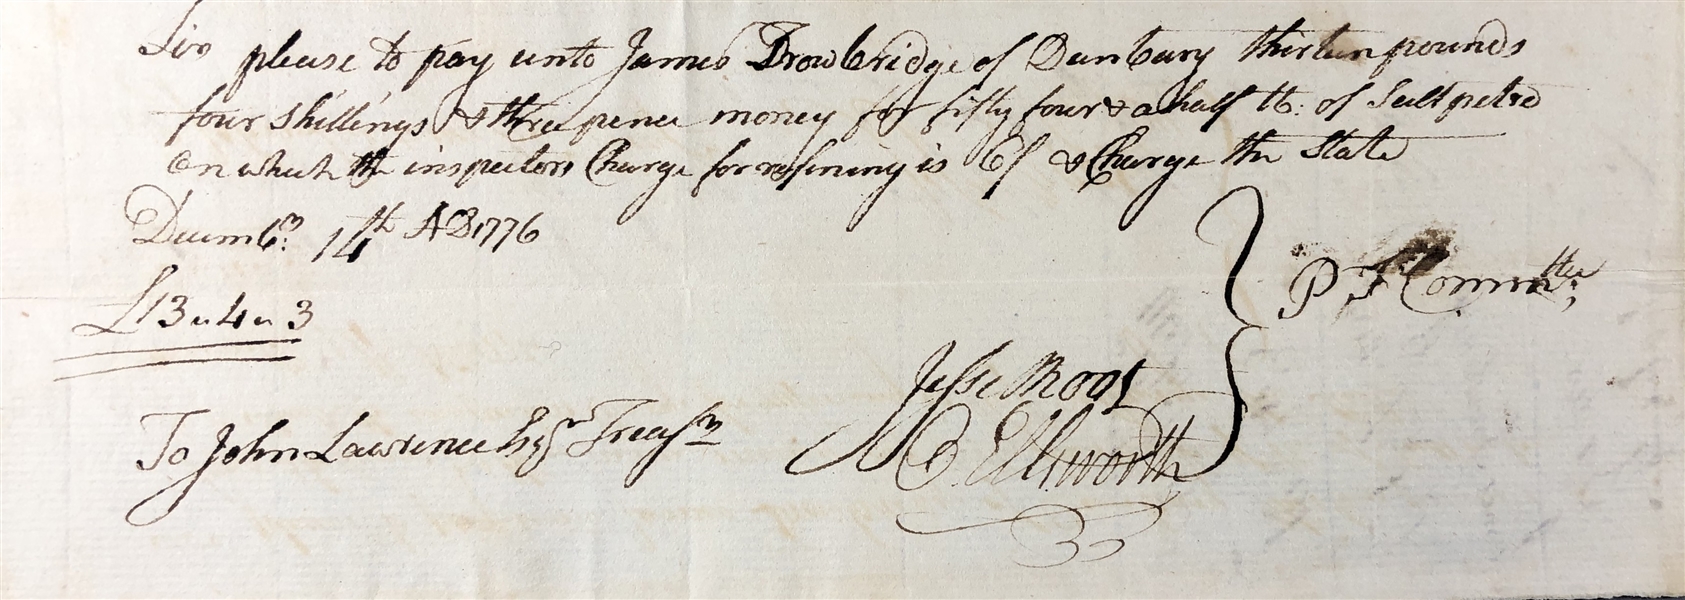 Sir please to pay unto James Trowbridge of Danbury thirteen pounds
four shillings & three pence money for fifty four & a half lb: of Salt petre
on which the inspectors Charge for refining is 6/ & Charge the State
Decembr. 14th AD 1776
£13 " 4 " 3
P. T Commttee
Jesse Root
O. Ellsworth
To John Lawrence Esqr Treasr